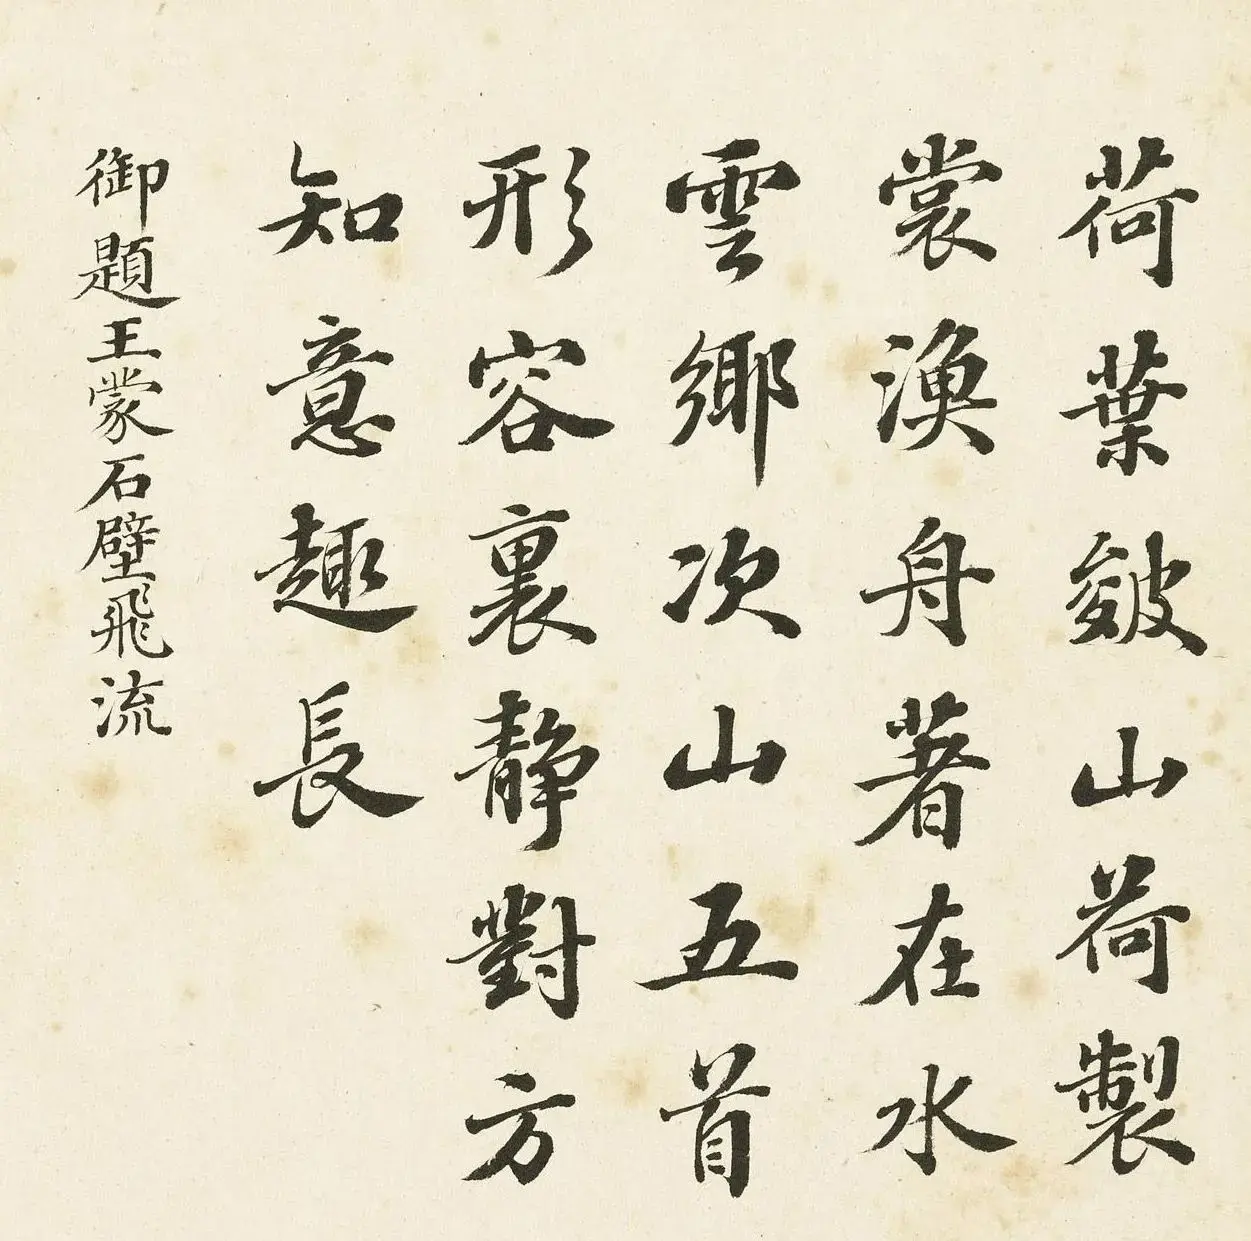 荷葉皴山荷製
裳漁舟著在水
雲鄉次山五首
形容裏靜對方
知意趣長
御題王蒙石壁飛流